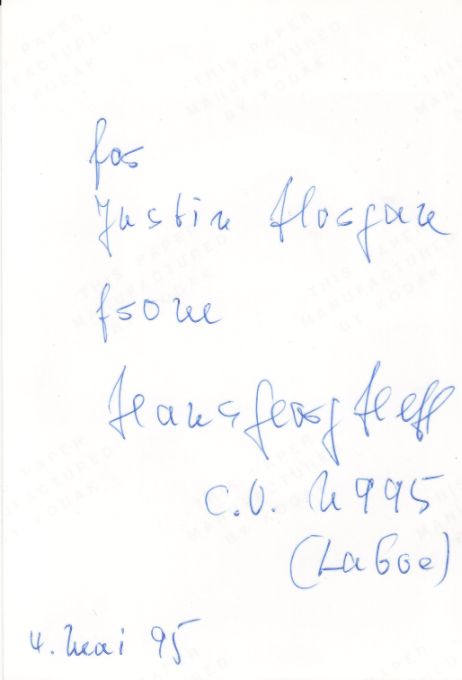 THIS PAPER
MANUFACTURED
BY KODAK
for
Justin
from
Hans Georg Hess
C.O. U 995
(Laboe)
4. Mai 95